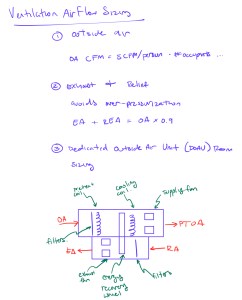 Ventilation Airflow Sizing
① outside air
OA CFM = 5CFM/person · # occupants ...
② Exhaust + Relief
avoids over-pressurization
EA + REA = OA × 0.9
③ Dedicated Outside Air Unit (DOAU)
Sizing
preheat coil
cooling coil
supply fan
OA
PTOA
filters
EA
RA
exhaust fan
energy recovery wheel
filters